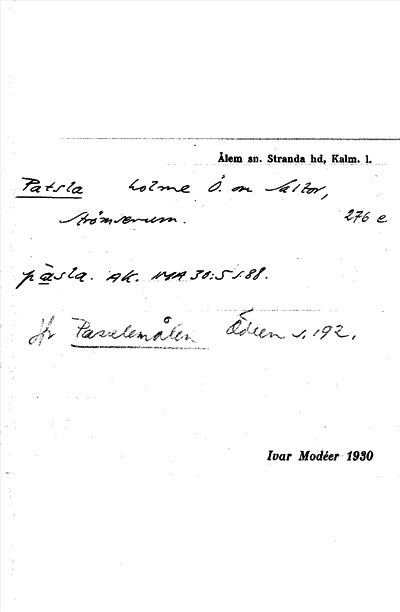 Ålem sn. Stranda hd, Kalm. l.
Patsla holme Ö. om Saltor,
Strömserum. 276 e
pàsla. AK. IMA 30:5 s. 88.
Jfr Passlemålen Ödeen s. 192.
Ivar Modéer 1930